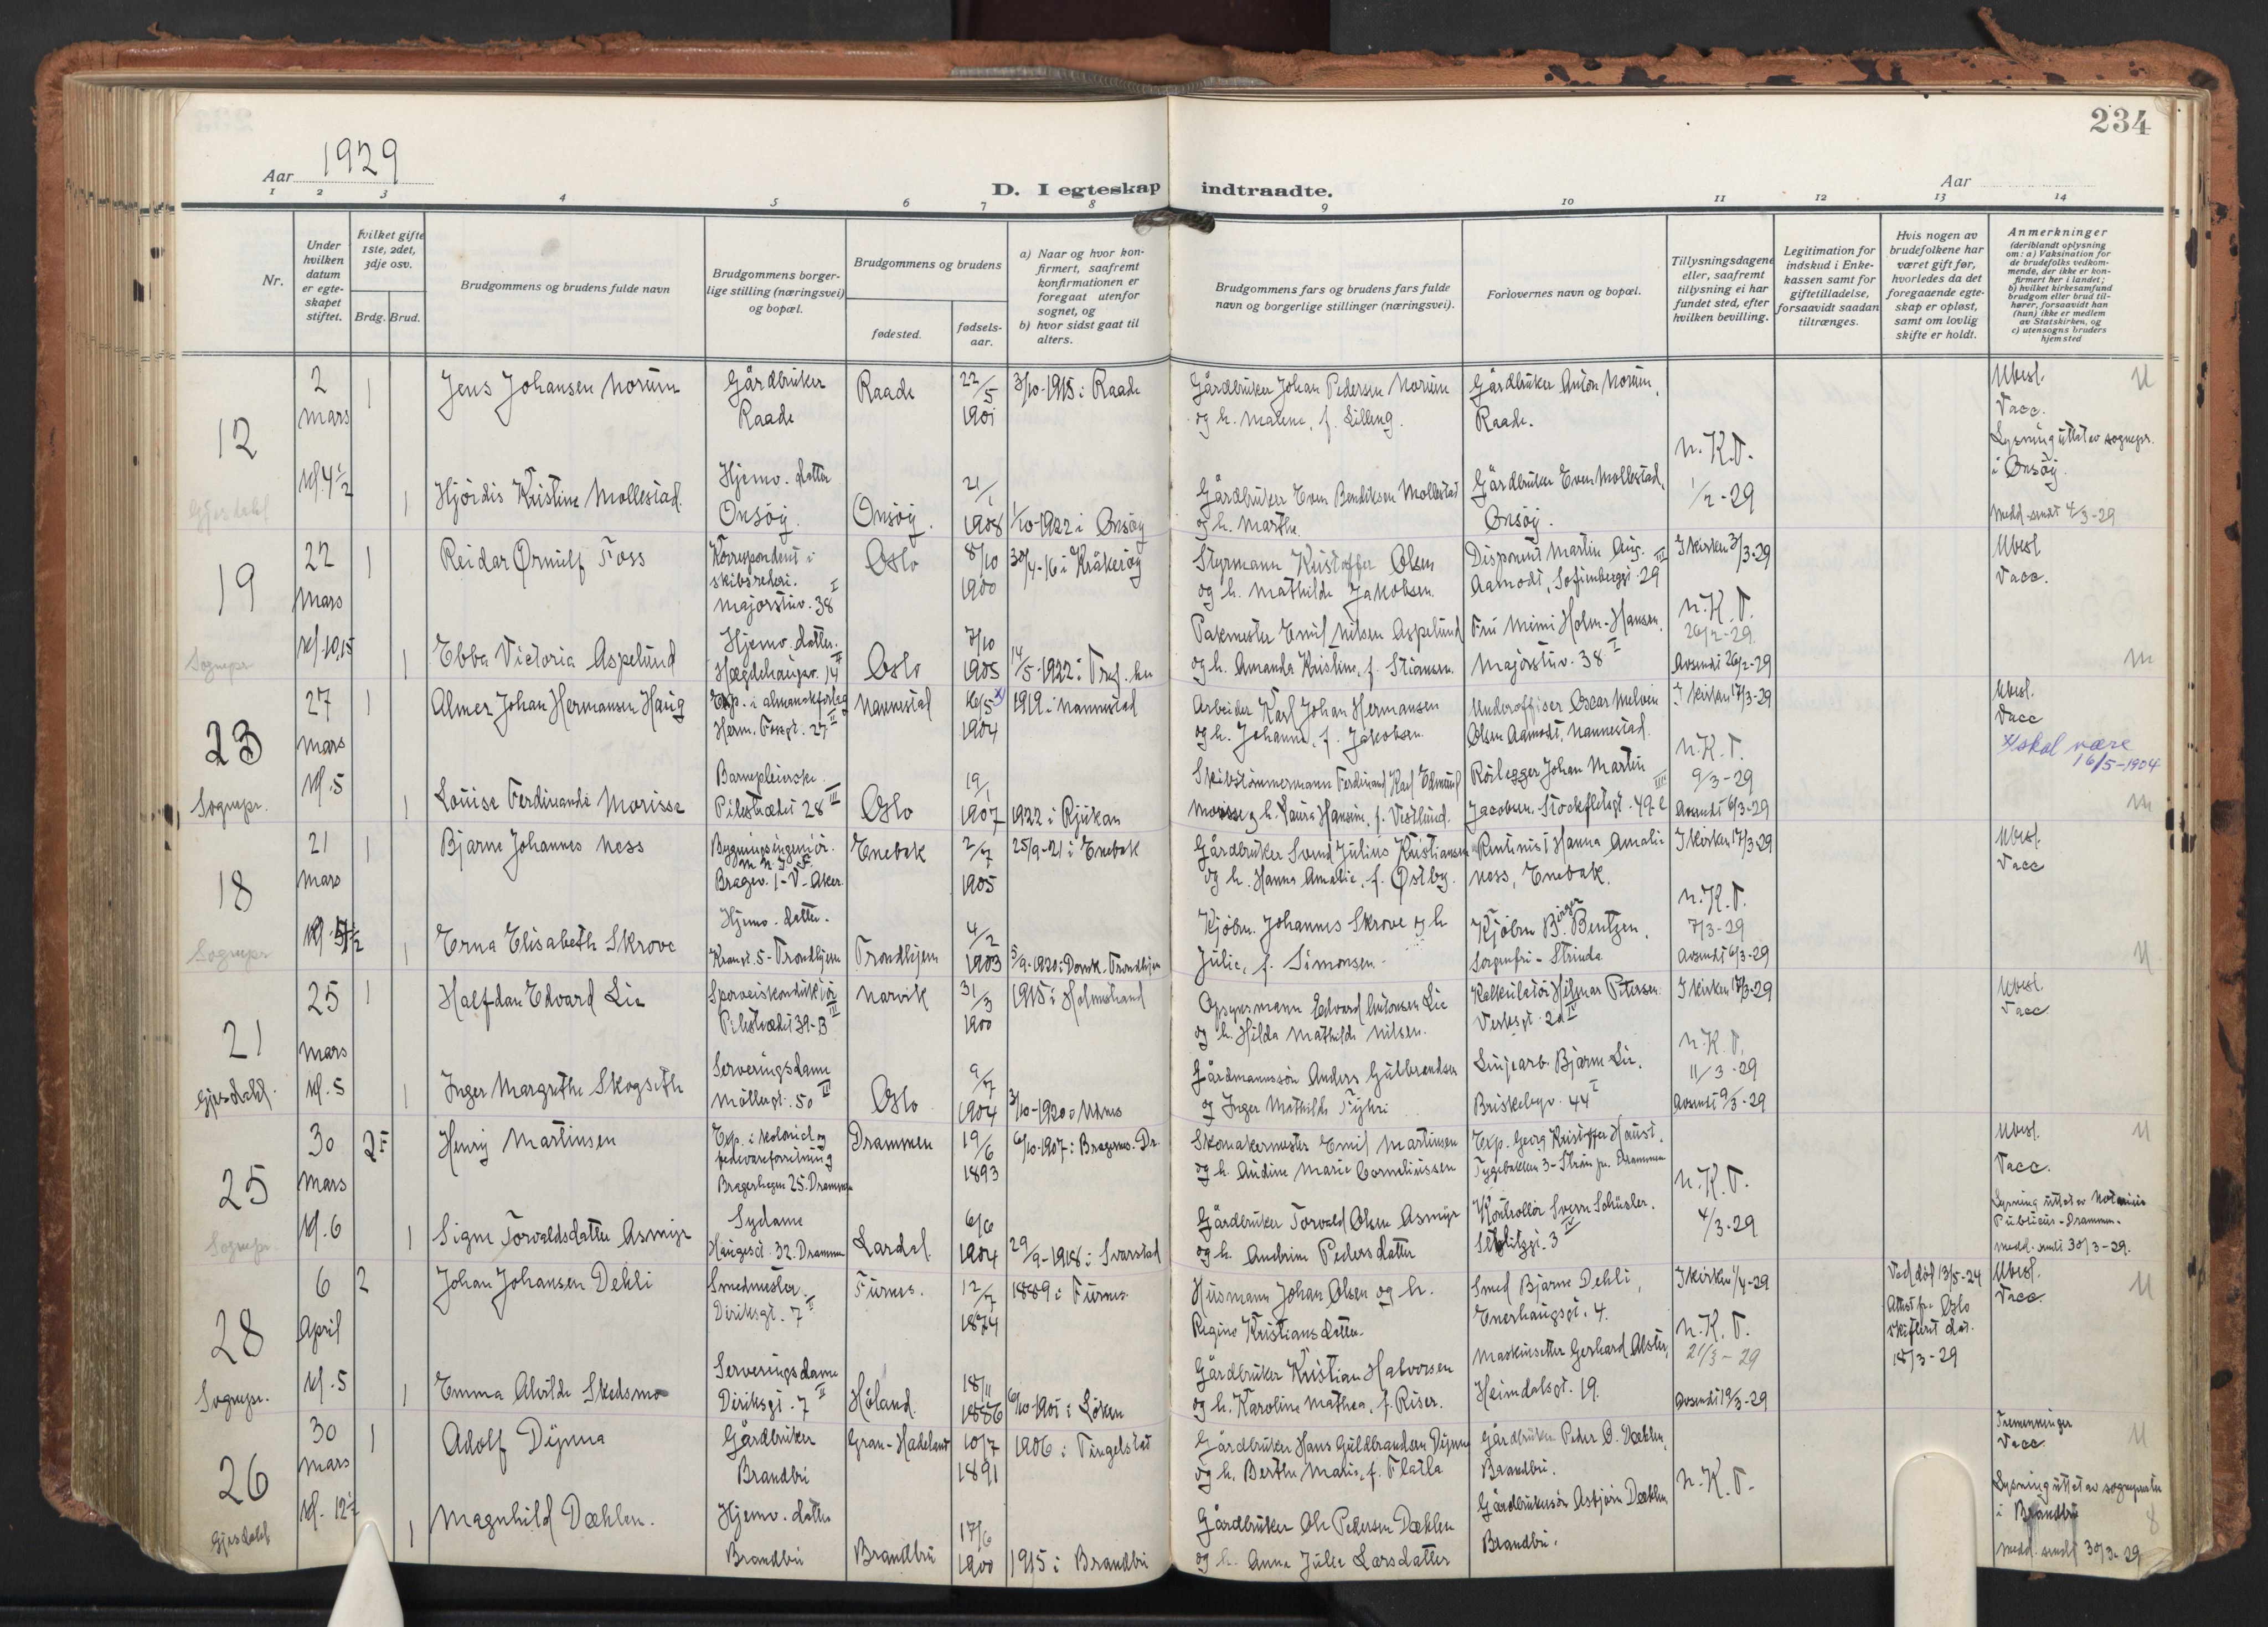 234
Aar 1929
D. I egteskap indtraadte.
Aar
1 2 3 4 5 6 7 8 9 10 11 12 13 14
Nr.
Under hvilken datum er egte-skapet stiftet.
Hvilket gifte 1ste, 2det, 3dje osv.
Brdg. Brud.
Brudgommens og brudens fulde navn
Brudgommens borger-lige stilling (næringsvei) og bopæl.
Brudgommens og brudens
fødested.
fødsels-aar.
a) Naar og hvor kon-firmert, saafremt konfirmationen er foregaat utenfor sognet, og
b) hvor sidst gaat til alters.
Brudgommens fars og brudens fars fulde navn og borgerlige stillinger (næringsvei).
Forlovernes navn og bopæl.
Tillysningsdagene eller, saafremt tillysning ei har fundet sted, efter hvilken bevilling.
Legitimation for indskud i Enke-kassen samt for giftetilladelse, forsaavidt saadan tiltrænges.
Hvis nogen av brudefolkene har været gift før, hvorledes da det foregaaende egte-skap er opløst, samt om lovlig skifte er holdt.
Anmerkninger
(deriblandt oplysning om: a) Vaksination for de brudefolks vedkom-mende, der ikke er kon-firmert her i landet; b) hvilket kirkesamfund brudgom eller brud til-hører, forsaavidt han (hun) ikke er medlem av Statskirken, og c) utensogns bruders hjemsted
12
2 Mars 1 Jens Johansen Norum Gårdbruker Raade Raade 22/5 1901 3/10-1915 i Raade Gårdbruker Johan Pedersen Norum og h. Malene, f. Lilleng. Gårdbruker Anton Norum, Raade. Ubesl. Vacc. U
Kl. 4 1/2 1 Hjördis Kristine Mollestad. Hjemv. datter Onsöy. Onsöy. 21/1 1908 1/10-1922 i Onsöy Gårdbruker Even Bendiksen Mollestad og h. Marthe Gårdbruker Even Mollestad, Onsöy. N.K.T. 1/2-29 Lysning uttat av sognepr. i Onsöy. Medd. sendt 4/3-29
Gjesdahl
19
22 Mars 1 Reidar Ørnulf Foss Korrespondent i skibsrederi. Majorstuv. 38 I Oslo 8/10 1900 30/4-16 i Kråkeröy Styrmann Kristoffer Olsen og h. Mathilde Jakobsen. Disponent Martin Aug. Aamodt, Sofienberggt. 29 III I kirken 3/3-29 Ubesl Vacc.
Kl. 10,15 1 Ebba Victoria Aspelund Hjemv. datter. Hægdehaugsv. 14 II Oslo 7/10 1905 14/5-1922 i Tref. hu Pakmester Emil Nilsen Aspelund og h. Amanda Kristine, f. Stiansen. Fru Mimi Holm-Hansen, Majorstuv. 38 I N.K.T. 26/2-29 Avsendt 26/2-29
Sognepr
23
27 Mars 1 Almer Johan Hermansen Haug Exp. i almanakforlag Herm. Fossgt. 27 II Nannestad 16/5 x) 1904 1919 i Nannestad Arbeider Karl Johan Hermansen og h. Johanne, f. Jakobsen. Underoffiser Oscar Melvin Olsen Aamodt, Nannestad. I kirken 17/3-29 Ubesl. Vacc
x/ skal være 16/5-1904
Kl. 5 1 Louise Ferdinande Morisse Barnepleierske. Pilestrædet 28 III Oslo 19/1 1907 1922 i Rjukan Skibstömmermann Ferdinand Karl Edmund Morisse og h. Laura Hansine, f. Vestlund. Rörlegger Johan Martin Jacobsen. Stockfletsgt. 49 e N.K.T. 9/3-29 Avsendt 6/3-29
Sognepr.
18
21 Mars 1 Bjarne Johannes Ness Bygningsingeniör. M.N.I.F. Bragev. 1-V-Aker. Enebak 2/7 1905 25/9-21 i Enebak Gårdbruker Svend Julius Kristiansen og h. Hanna Amalie, f. Østby. Rentenist Hanna Amalie Ness, Enebak. I kirken 17/3-29 Ubesl. Vacc
Kl. 5 1/2 1 Erna Elisabeth Skrove Hjemv. datter. Krangt. 5-Trondhjem Trondhjem 4/2 1903 5/9-1920 i Domk.-Trondhjem Kjöbm. Johannes Skrove og h Julie, f. Simonsen. Kjöbm Birger B. Bentzen. Sorgenfri-Strinda N.K.T. 7/3-29 Avsendt 6/3-29 U
Sognepr
21
25 Mars 1 Halfdan Edvard Lie Sporveiskonduktör Pilestrædet 39-B III Narvik 31/3 1900 1915 i Holmestrand Opsynsmann Edvard Antonsen Lie og h. Hilda Mathilde Nilsen. Kalkulatör Hilmar Petersen. Verksgt. 2a IV I kirken 17/3-29 Ubesl. Vacc.
Kl. 5 1 Inger Margrethe Skogseth Serveringsdame Möllergt. 50 III Oslo 9/7 1904 3/10-1920 i Nanes Gårdmannssön Anders Gulbrandsen og Inger Mathilde Fyhri Linjearb. Bjarne Lie. Briskebyv. 44 I N.K.T. 11/3-29 Avsendt 9/3-29
Gjesdahl.
25
30 Mars 2F Henry Martinsen Exp. i kolonial og fedevareforretning Bragerhegen 25. Drammen Drammen 19/6 1893 6/10-1907 i Bragernes-Dr. Skomakermester Emil Martinsen og h. Andine Marie Corneliussen Exp. Georg Kristoffer Haust. Tygebakken 3-Ström pr. Drammen Ubesl. Vacc. U
Kl. 6 1 Signe Torvaldsdatter Asmyr Sydame Haugesgt. 32. Drammen Lardal 6/6 1904 29/9-1918 i Svarstad Gårdbruker Torvald Olsen Asmyr og h. Andrine Pedersdatter Kontrollör Sverre Schüsler. 3 IV N.K.T. 4/3-29 Lysning uttat av Notarius Publicus-Drammen. Medd. sendt 30/3-29.
Sognepr.
28
6 April 2 Johan Johansen Dehli Smedmester. Diriksgt. 7 II Furnes. 12/7 1874 1889 i Furnes. Husmann Johan Olsen og h. Regine Kristiansdatter. Smed Bjarne Dehli, Enerhaugsgt. 4. I kirken 1/4-29 Ved död 13/5-24 Attest fra Oslo skifterett dat. 18/3-29 Ubesl. Vacc. U
Kl. 5 1 Emma Alvilde Skedsmo Serveringsdame Diriksgt. 7 II Höland. 18/11 1886 6/10-1901 i Löken Gårdbruker Kristian Halvorsen og h. Karoline Mathea, f. Riser. Maskinsetter Gerhard Alster, Heimdalsgt. 19. N.K.T. 21/3-29 Avsendt 19/3-29
Sognepr.
26
30 Mars 1 Adolf Dynna Gårdbruker Brandbu Gran-Hadeland 10/7 1891 1906 i Tingelstad Gårdbruker Hans Guldbrandsen Dynna og h. Berthe Marie, f. Flatla Gårdbruker Peder O. Dæhlen, Brandbu. Tremenninger Vacc. U
Kl. 12 1/2 1 Magnhild Dæhlen. Hjemv. datter Brandbu Brandbu 17/6 1900 1915 i Brandbu Gårdbruker Ole Pedersen Dæhlen og h. Anne Julie Larsdatter Gårdbrukersön Asbjörn Dæhlen, Brandbu. N.K.T. Lysning uttat av sognepresten i Brandbu Medd. sendt 30/3-29
Gjesdahl